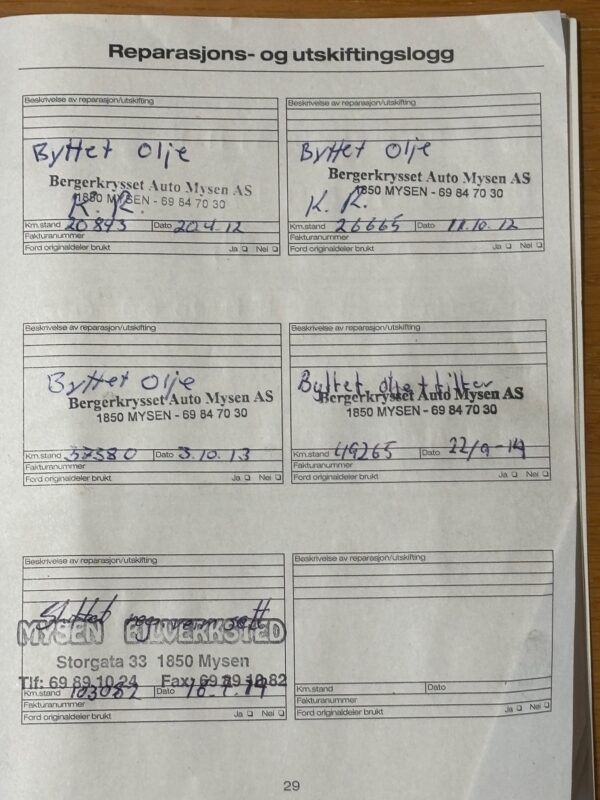 Reparasjons- og utskiftingslogg
Beskrivelse av reparasjon/utskifting
Byttet olje
Bergerkrysset Auto Mysen AS
1850 MYSEN - 69 84 70 30
K. R.
Km.stand 20843 Dato 20.4.12
Fakturanummer
Ford originaldeler brukt Ja Nei
Beskrivelse av reparasjon/utskifting
Byttet olje
Bergerkrysset Auto Mysen AS
1850 MYSEN - 69 84 70 30
K. R.
Km.stand 26665 Dato 11.10.12
Fakturanummer
Ford originaldeler brukt Ja Nei
Beskrivelse av reparasjon/utskifting
Byttet olje
Bergerkrysset Auto Mysen AS
1850 MYSEN - 69 84 70 30
Km.stand 37380 Dato 3.10.13
Fakturanummer
Ford originaldeler brukt Ja Nei
Beskrivelse av reparasjon/utskifting
Byttet olje + filter
Bergerkrysset Auto Mysen AS
1850 MYSEN - 69 84 70 30
Km.stand 49265 Dato 22/9-14
Fakturanummer
Ford originaldeler brukt Ja Nei
Beskrivelse av reparasjon/utskifting
MYSEN BILVERKSTED
Storgata 33 1850 Mysen
Tlf: 69 89 10 24 Fax: 69 89 18 82
Km.stand 103082 Dato
Fakturanummer
Ford originaldeler brukt Ja Nei
Beskrivelse av reparasjon/utskifting
Km.stand Dato
Fakturanummer
Ford originaldeler brukt Ja Nei
29